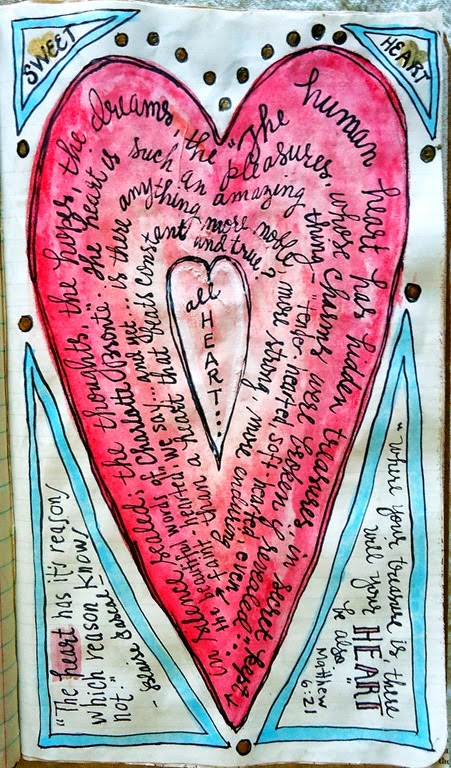 SWEET
HEART
"The human heart has hidden treasures in secret kept,
in silence sealed; the thoughts, the hopes, the dreams, the
pleasures, whose charms were broken if revealed...
in the beautiful words of Charlotte Bronte." The heart is
such an amazing thing - "tender hearted, soft hearted, even
faint-hearted, we say... and yet... is there
anything more noble, more strong, more enduring
than a heart that beats constant and true?
all
HEART...
"The heart has its reason,
which reason know,
not."
- Blaise Pascal -
"where your treasure is, there
will your HEART
be also"
Matthew
6:21